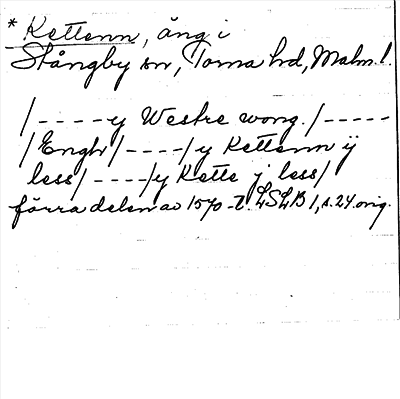 * Kettenn, äng i
Stångby sn, Torna hd, Malm. l.
/-----y Westre wong./-----
/Enghr/----/y Kettenn ÿ
less/----/y Kette j less/
förra delen av 1570-t. LSLB 1, s. 24. orig.